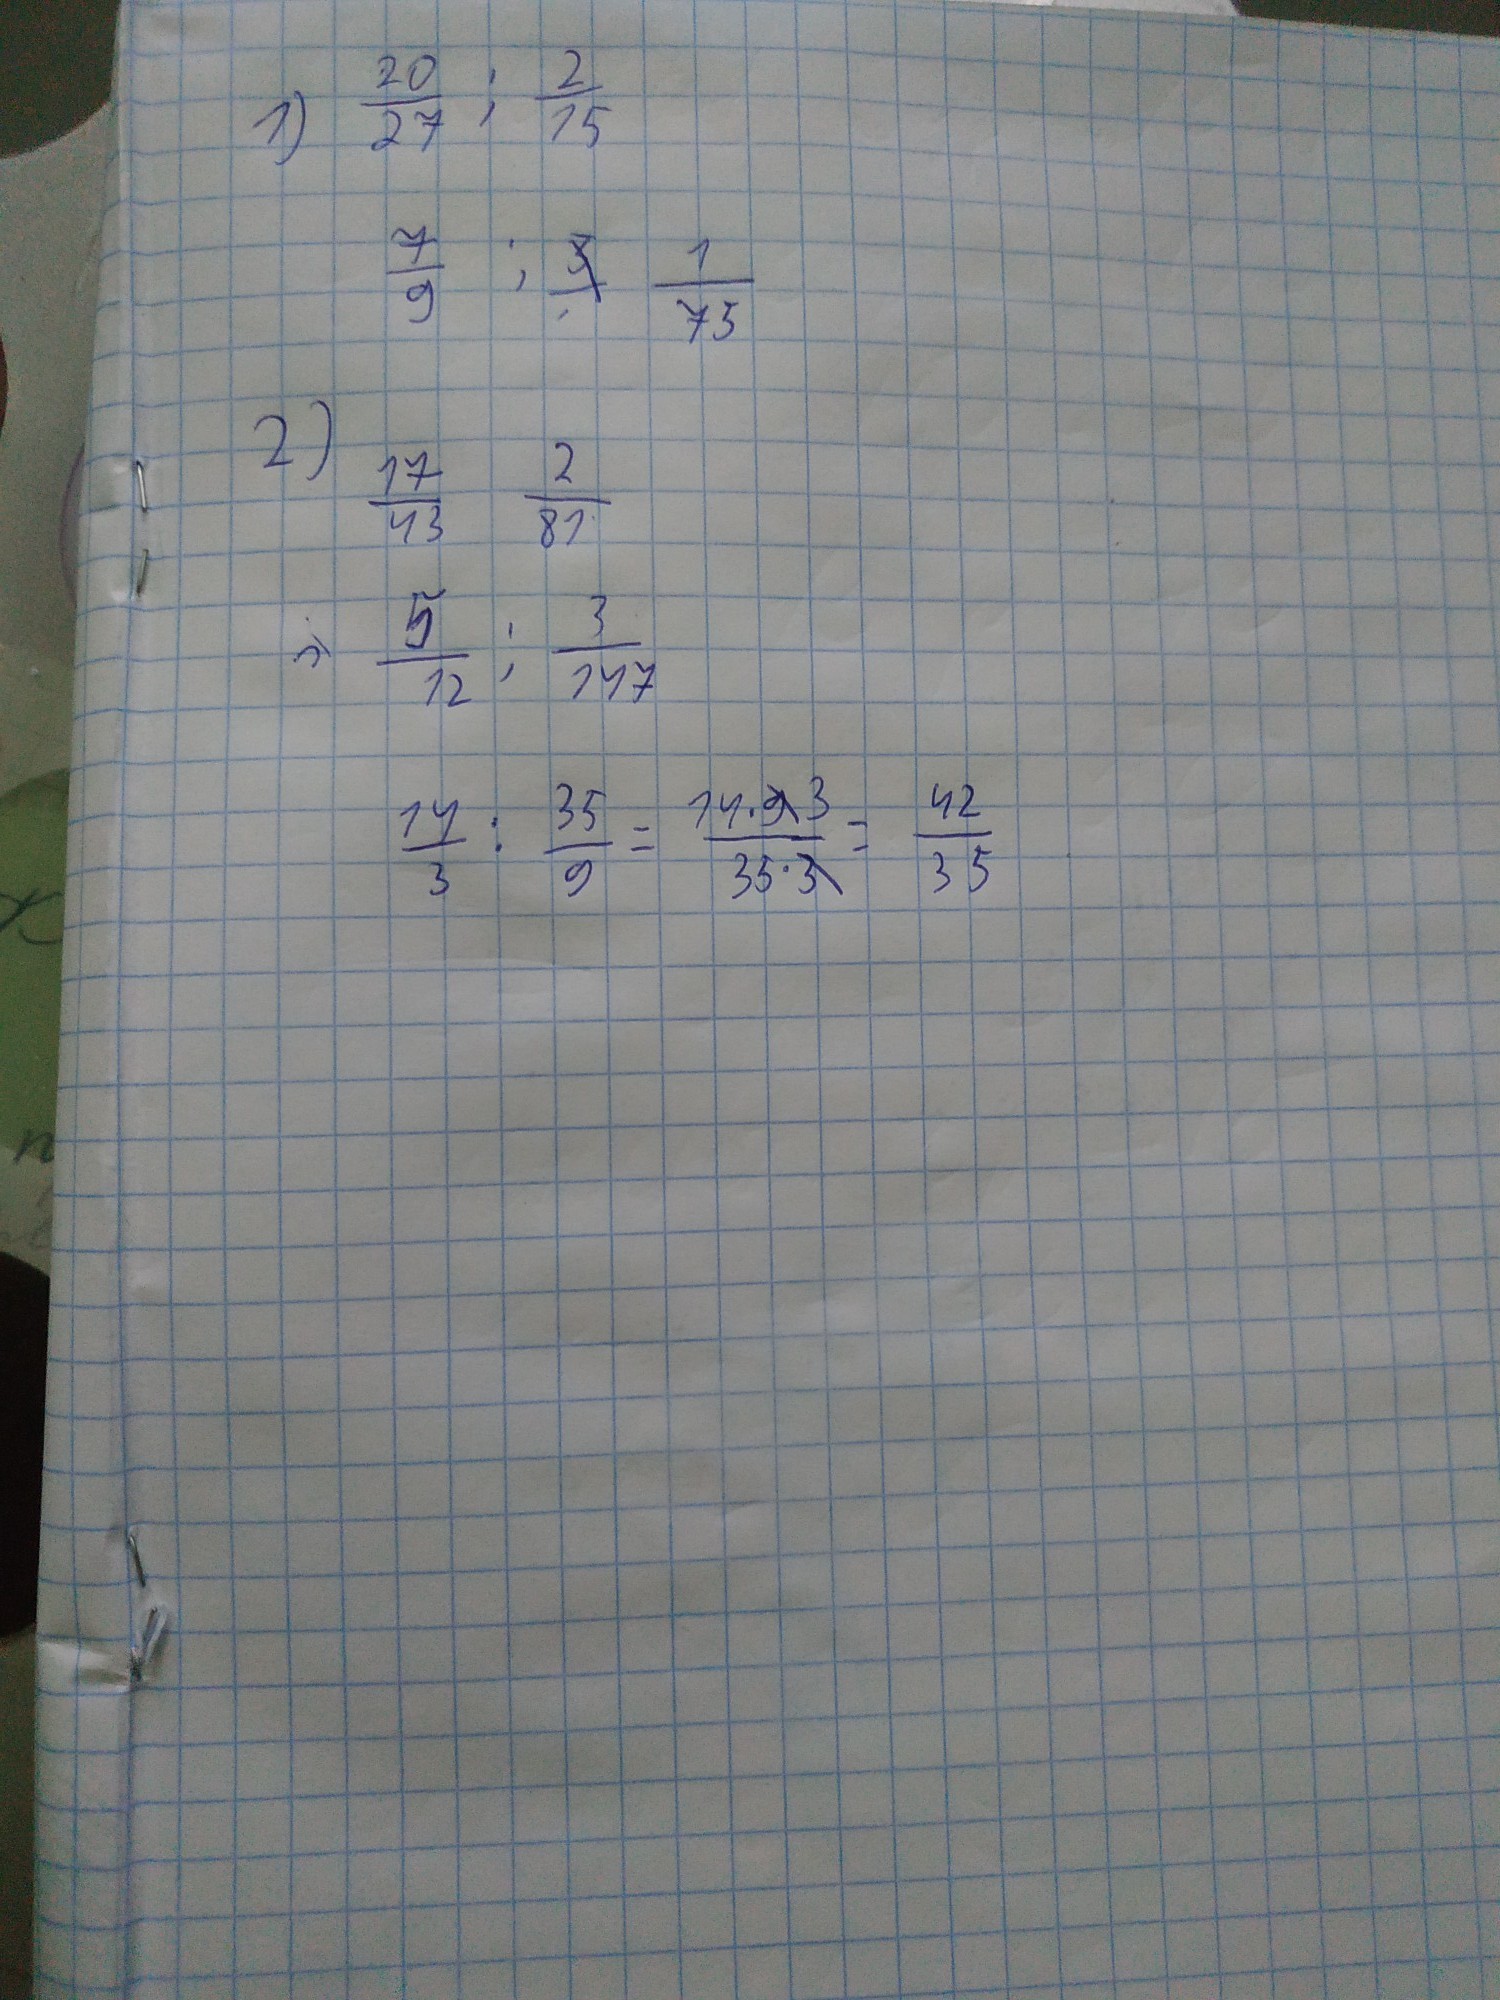 1) 20/27 ; 2/15
7/9 ; 1/75
2)
17/43 2/81
5/12 ; 3/147
14/3 : 35/9 = 14·9 3/35·3 = 42/35